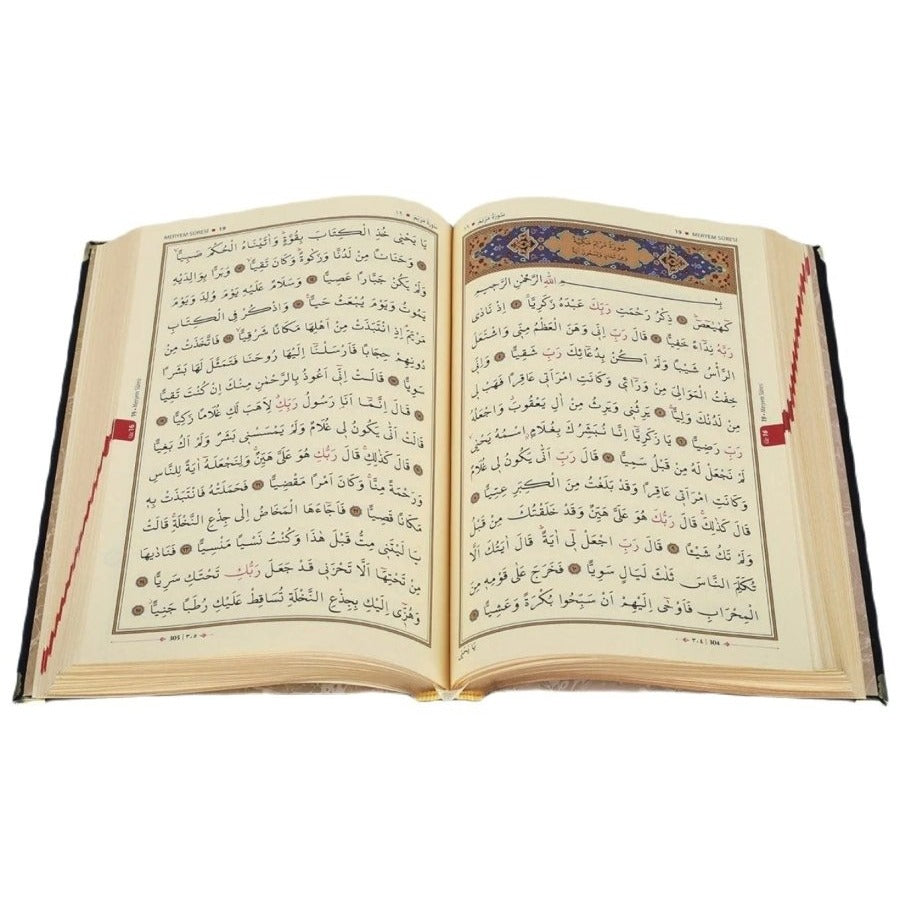 سورة مريم ١٩
19 • MERYEM SÛRESİ
بِسْمِ اللّٰهِ الرَّحْمٰنِ الرَّحِيمِ
كٓهٰيٰعٓصٓ ١ ذِكْرُ رَحْمَتِ رَبِّكَ عَبْدَهُ زَكَرِيَّا ٢ اِذْ نَادٰى
رَبَّهُ نِدَٓاءً خَفِيًّا ٣ قَالَ رَبِّ اِنِّي وَهَنَ الْعَظْمُ مِنِّي وَاشْتَعَلَ
الرَّأْسُ شَيْبًا وَلَمْ اَكُنْ بِدُعَٓائِكَ رَبِّ شَقِيًّا ٤ وَاِنِّي
خِفْتُ الْمَوَالِيَ مِنْ وَرَٓائِي وَكَانَتِ امْرَاَتِي عَاقِرًا فَهَبْ لِي
مِنْ لَدُنْكَ وَلِيًّا ٥ يَرِثُنِي وَيَرِثُ مِنْ اٰلِ يَعْقُوبَ وَاجْعَلْهُ
رَبِّ رَضِيًّا ٦ يَا زَكَرِيَّٓا اِنَّا نُبَشِّرُكَ بِغُلَامٍ اسْمُهُ يَحْيٰى
لَمْ نَجْعَلْ لَهُ مِنْ قَبْلُ سَمِيًّا ٧ قَالَ رَبِّ اَنّٰى يَكُونُ لِي غُلَامٌ
وَكَانَتِ امْرَاَتِي عَاقِرًا وَقَدْ بَلَغْتُ مِنَ الْكِبَرِ عِتِيًّا ٨
قَالَ كَذٰلِكَ قَالَ رَبُّكَ هُوَ عَلَيَّ هَيِّنٌ وَقَدْ خَلَقْتُكَ مِنْ قَبْلُ
وَلَمْ تَكُ شَيْئًا ٩ قَالَ رَبِّ اجْعَلْ لِي اٰيَةً قَالَ اٰيَتُكَ اَلَّا
تُكَلِّمَ النَّاسَ ثَلٰثَ لَيَالٍ سَوِيًّا ١٠ فَخَرَجَ عَلٰى قَوْمِهِ مِنَ
الْمِحْرَابِ فَاَوْحٰٓى اِلَيْهِمْ اَنْ سَبِّحُوا بُكْرَةً وَعَشِيًّا ١١
304 | ٣٠٤
يَا يَحْيٰى
19 - Meryem Sûresi
Cüz 16
سورة مريم ١٩
MERYEM SÛRESİ • 19
يَا يَحْيٰى خُذِ الْكِتَابَ بِقُوَّةٍ وَاٰتَيْنَاهُ الْحُكْمَ صَبِيًّا
١٢ وَحَنَانًا مِنْ لَدُنَّا وَزَكٰوةً وَكَانَ تَقِيًّا ١٣ وَبَرًّا بِوَالِدَيْهِ
وَلَمْ يَكُنْ جَبَّارًا عَصِيًّا ١٤ وَسَلَامٌ عَلَيْهِ يَوْمَ وُلِدَ وَيَوْمَ
يَمُوتُ وَيَوْمَ يُبْعَثُ حَيًّا ١٥ وَاذْكُرْ فِي الْكِتَابِ
مَرْيَمَ اِذِ انْتَبَذَتْ مِنْ اَهْلِهَا مَكَانًا شَرْقِيًّا ١٦ فَاتَّخَذَتْ مِنْ
دُونِهِمْ حِجَابًا فَاَرْسَلْنَٓا اِلَيْهَا رُوحَنَا فَتَمَثَّلَ لَهَا بَشَرًا
سَوِيًّا ١٧ قَالَتْ اِنِّٓي اَعُوذُ بِالرَّحْمٰنِ مِنْكَ اِنْ كُنْتَ تَقِيًّا
١٨ قَالَ اِنَّمَٓا اَنَا رَسُولُ رَبِّكِ لِاَهَبَ لَكِ غُلَامًا زَكِيًّا ١٩
قَالَتْ اَنّٰى يَكُونُ لِي غُلَامٌ وَلَمْ يَمْسَسْنِي بَشَرٌ وَلَمْ اَكُ بَغِيًّا
٢٠ قَالَ كَذٰلِكِ قَالَ رَبُّكِ هُوَ عَلَيَّ هَيِّنٌ وَلِنَجْعَلَهُٓ اٰيَةً لِلنَّاسِ
وَرَحْمَةً مِنَّا وَكَانَ اَمْرًا مَقْضِيًّا ٢١ فَحَمَلَتْهُ فَانْتَبَذَتْ بِهِ
مَكَانًا قَصِيًّا ٢٢ فَاَجَٓاءَهَا الْمَخَاضُ اِلٰى جِذْعِ النَّخْلَةِ قَالَتْ
يَا لَيْتَنِي مِتُّ قَبْلَ هٰذَا وَكُنْتُ نَسْيًا مَنْسِيًّا ٢٣ فَنَادٰيهَا
مِنْ تَحْتِهَٓا اَلَّا تَحْزَنِي قَدْ جَعَلَ رَبُّكِ تَحْتَكِ سَرِيًّا ٢٤
وَهُزِّٓي اِلَيْكِ بِجِذْعِ النَّخْلَةِ تُسَاقِطْ عَلَيْكِ رُطَبًا جَنِيًّا ٢٥
305 | ٣٠٥
19 - Meryem Sûresi
Cüz 16